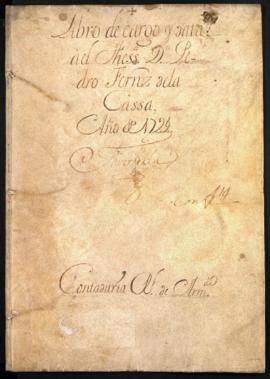 +
Libro de cargo y data
del Thess.o D. Pe-
dro Fernz dela
Cassa,
Año de 1724
Contaduria Rl. de Arm.da